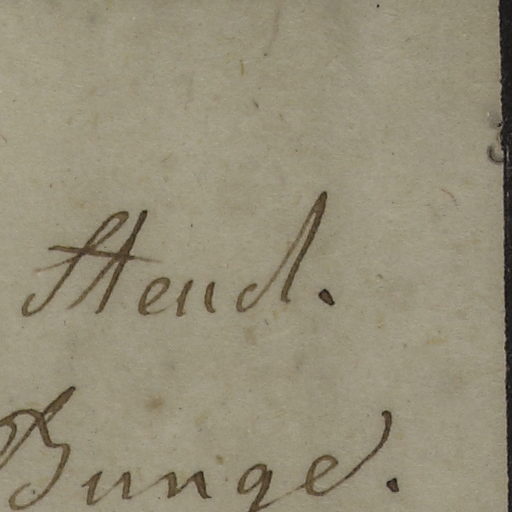 Steud.
Bunge.